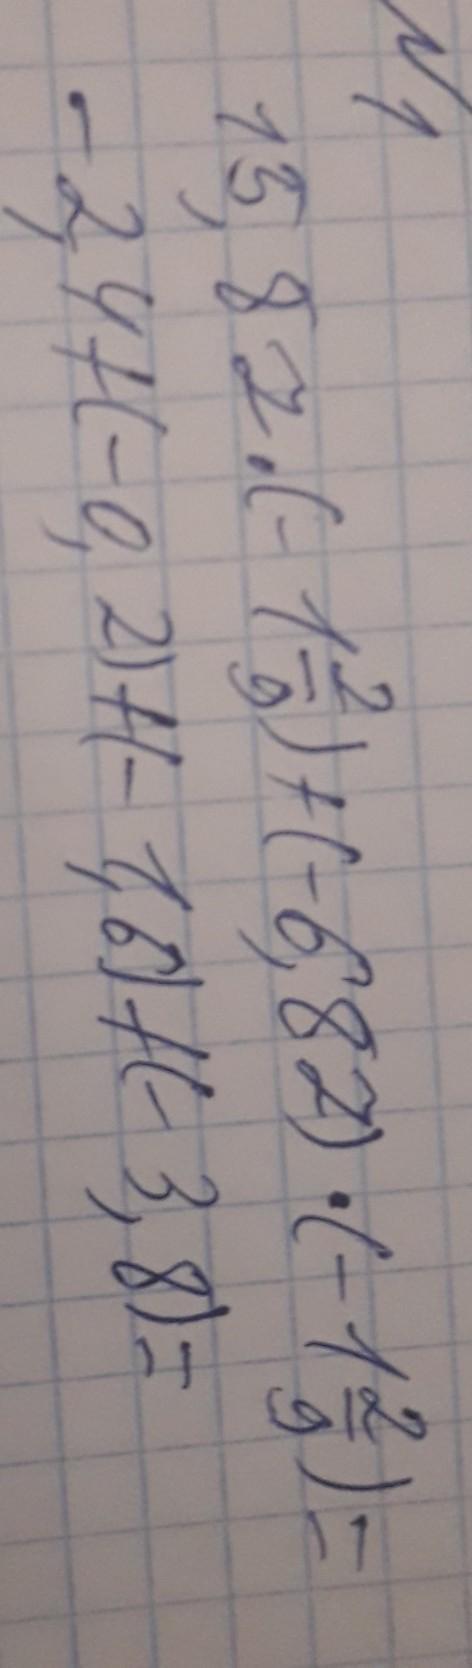 N1
15,82·(-1 2/9)+(-6,82)·(-1 2/9)=
-2,4+(-0,2)+(-1,6)+(-3,8)=